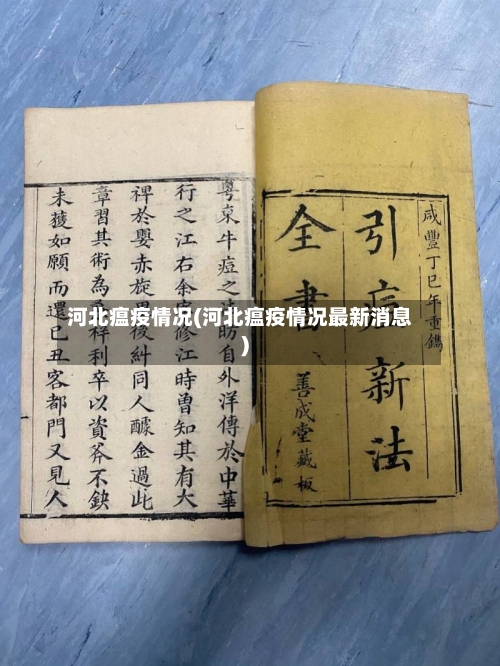 咸豐丁巳年重鐫
引痘新法
全書
善成堂藏板
粵東牛痘之昉自外洋傳於中華
行之江右余修江時曾知其有大
裨於嬰赤旋後糾同人醵金過此
章習其術為科利卒以資斧不缺
未獲如願而還己丑客都門又見人
河北瘟疫情况(河北瘟疫情况最新消息
)